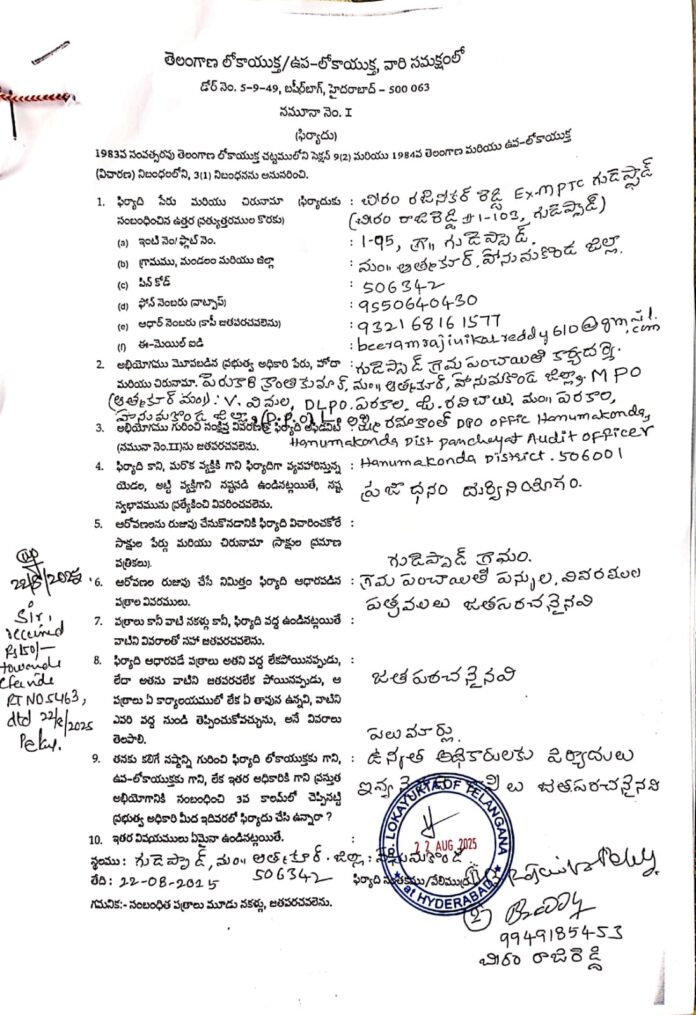 తెలంగాణ లోకాయుక్త/ఉప-లోకాయుక్త, వారి సమక్షంలో
డోర్ నెం. 5-9-49, బషీర్‌బాగ్, హైదరాబాద్ - 500 063
నమూనా నెం. I
(ఫిర్యాదు)
1983వ సంవత్సరపు తెలంగాణ లోకాయుక్త చట్టములోని సెక్షన్ 9(2) మరియు 1984వ తెలంగాణ మరియు ఉప-లోకాయుక్త
(విచారణ) నిబంధలలోని, 3(1) నిబంధనను అనుసరించి.
1. ఫిర్యాది పేరు మరియు చిరునామా (ఫిర్యాదుకు : బీరం రజినీకర్ రెడ్డి Ex-MPTC గుడెప్పాడ్
సంబంధించిన ఉత్తర ప్రత్యుత్తరముల కొరకు) (బీరం రాజిరెడ్డి #1-103, గుడెప్పాడ్)
(a) ఇంటి నెం/ఫ్లాట్ నెం. : 1-95, గ్రా|| గుడెప్పాడ్.
(b) గ్రామము, మండలం మరియు జిల్లా : మం|| ఆత్మకూర్. హనుమకొండ జిల్లా.
(c) పిన్ కోడ్ : 506342
(d) ఫోన్ నెంబరు (వాట్సాప్) : 9550640430
(e) ఆధార్ నెంబరు (కాపీ జతపరచవలెను) : 9321 6816 1577
(f) ఈ-మెయిల్ ఐడి : beeramrajinikarreddy610@gmail.com
2. అభియోగము మోపబడిన ప్రభుత్వ అధికారి పేరు, హోదా : గుడెప్పాడ్ గ్రామ పంచాయితీ కార్యదర్శి.
మరియు చిరునామా. పెరుకారి క్రాంతికుమార్, మం|| ఆత్మకూర్, హనుమకొండ జిల్లా. MPO
(ఆత్మకూర్ మం) : V. విమల, DLPO. పరకాల, మం|| పరకాల,
హనుమకొండ జిల్లా, (D.P.O)
3. అభియోగము గురించి సంక్షిప్త వివరణతో ఫిర్యాది అఫిడవిట్ రమాకాంత్ DPO offic Hanumakonda,
(నమూనా నెం.II)ను జతపరచవలెను. Hanumakonda Dist panchayat Audit officer
4. ఫిర్యాది కాని, మరొక వ్యక్తికి గాని ఫిర్యాదిగా వ్యవహరిస్తున్న : Hanumakonda District. 506001
యెడల, అట్టి వ్యక్తిగాని నష్టపడి ఉండినట్లయితే, నష్ట ప్రజా ధనం దుర్వినియోగం.
స్వభావమును ప్రత్యేకించి వివరించవలెను.
5. ఆరోపణలను రుజువు చేసుకొనడానికి ఫిర్యాది విచారించకోరే :
సాక్షుల పేర్లు మరియు చిరునామా (సాక్షుల ప్రమాణ
పత్రికలు). గుడెప్పాడ్ గ్రామం.
6. ఆరోపణల రుజువు చేసే నిమిత్తం ఫిర్యాది ఆధారపడిన : గ్రామ పంచాయితీ పన్నుల, వివరముల
పత్రాల వివరములు. పత్రములు జతపరచనైనవి
7. పత్రాలు కానీ వాటి నకళ్లు కానీ, ఫిర్యాది వద్ద ఉండినట్లయితే :
వాటిని వివరాలతో సహా జతపరచవలెను.
8. ఫిర్యాది ఆధారపడే పత్రాలు అతని వద్ద లేకపోయినప్పుడు, :
లేదా అతను వాటిని జతపరచలేక పోయినప్పుడు, ఆ జతపరచనైనవి
పత్రాలు ఏ కార్యాలయములో లేక ఏ తావున ఉన్నవి, వాటిని
ఎవరి వద్ద నుండి తెప్పించుకోవచ్చును, అనే వివరాలు
తెలపాలి. పలుమార్లు.
9. తనకు కలిగే నష్టాన్ని గురించి ఫిర్యాది లోకాయుక్తకు గాని, : ఉన్నత అధికారులకు పిర్యాదులు
ఉప-లోకాయుక్తకు గాని, లేక ఇతర అధికారికి గాని ప్రస్తుత జతపరచనైనవి
అభియోగానికి సంబంధించి 3వ కాలమ్‌లో చెప్పినట్టి
ప్రభుత్వ అధికారి మీద ఇదివరలో ఫిర్యాదు చేసి ఉన్నారా ?
10. ఇతర విషయములు ఏమైనా ఉండినట్లయితే.
స్థలము : గుడెప్పాడ్, మం|| ఆత్మకూర్. జిల్లా : హనుమకొండ
తేది : 22-08-2025 506342 ఫిర్యాది
గమనిక:- సంబంధిత పత్రాలు మూడు నకళ్లు, జతపరచవలెను.
22/8/2025
Sir,
received
Rs150/-
towards
RT NO5463,
dtd 22/8/2025
LOKAYUKTA OF TELANGANA
22 AUG 2025
at HYDERABAD
②
9949185453
బీరం రాజిరెడ్డి